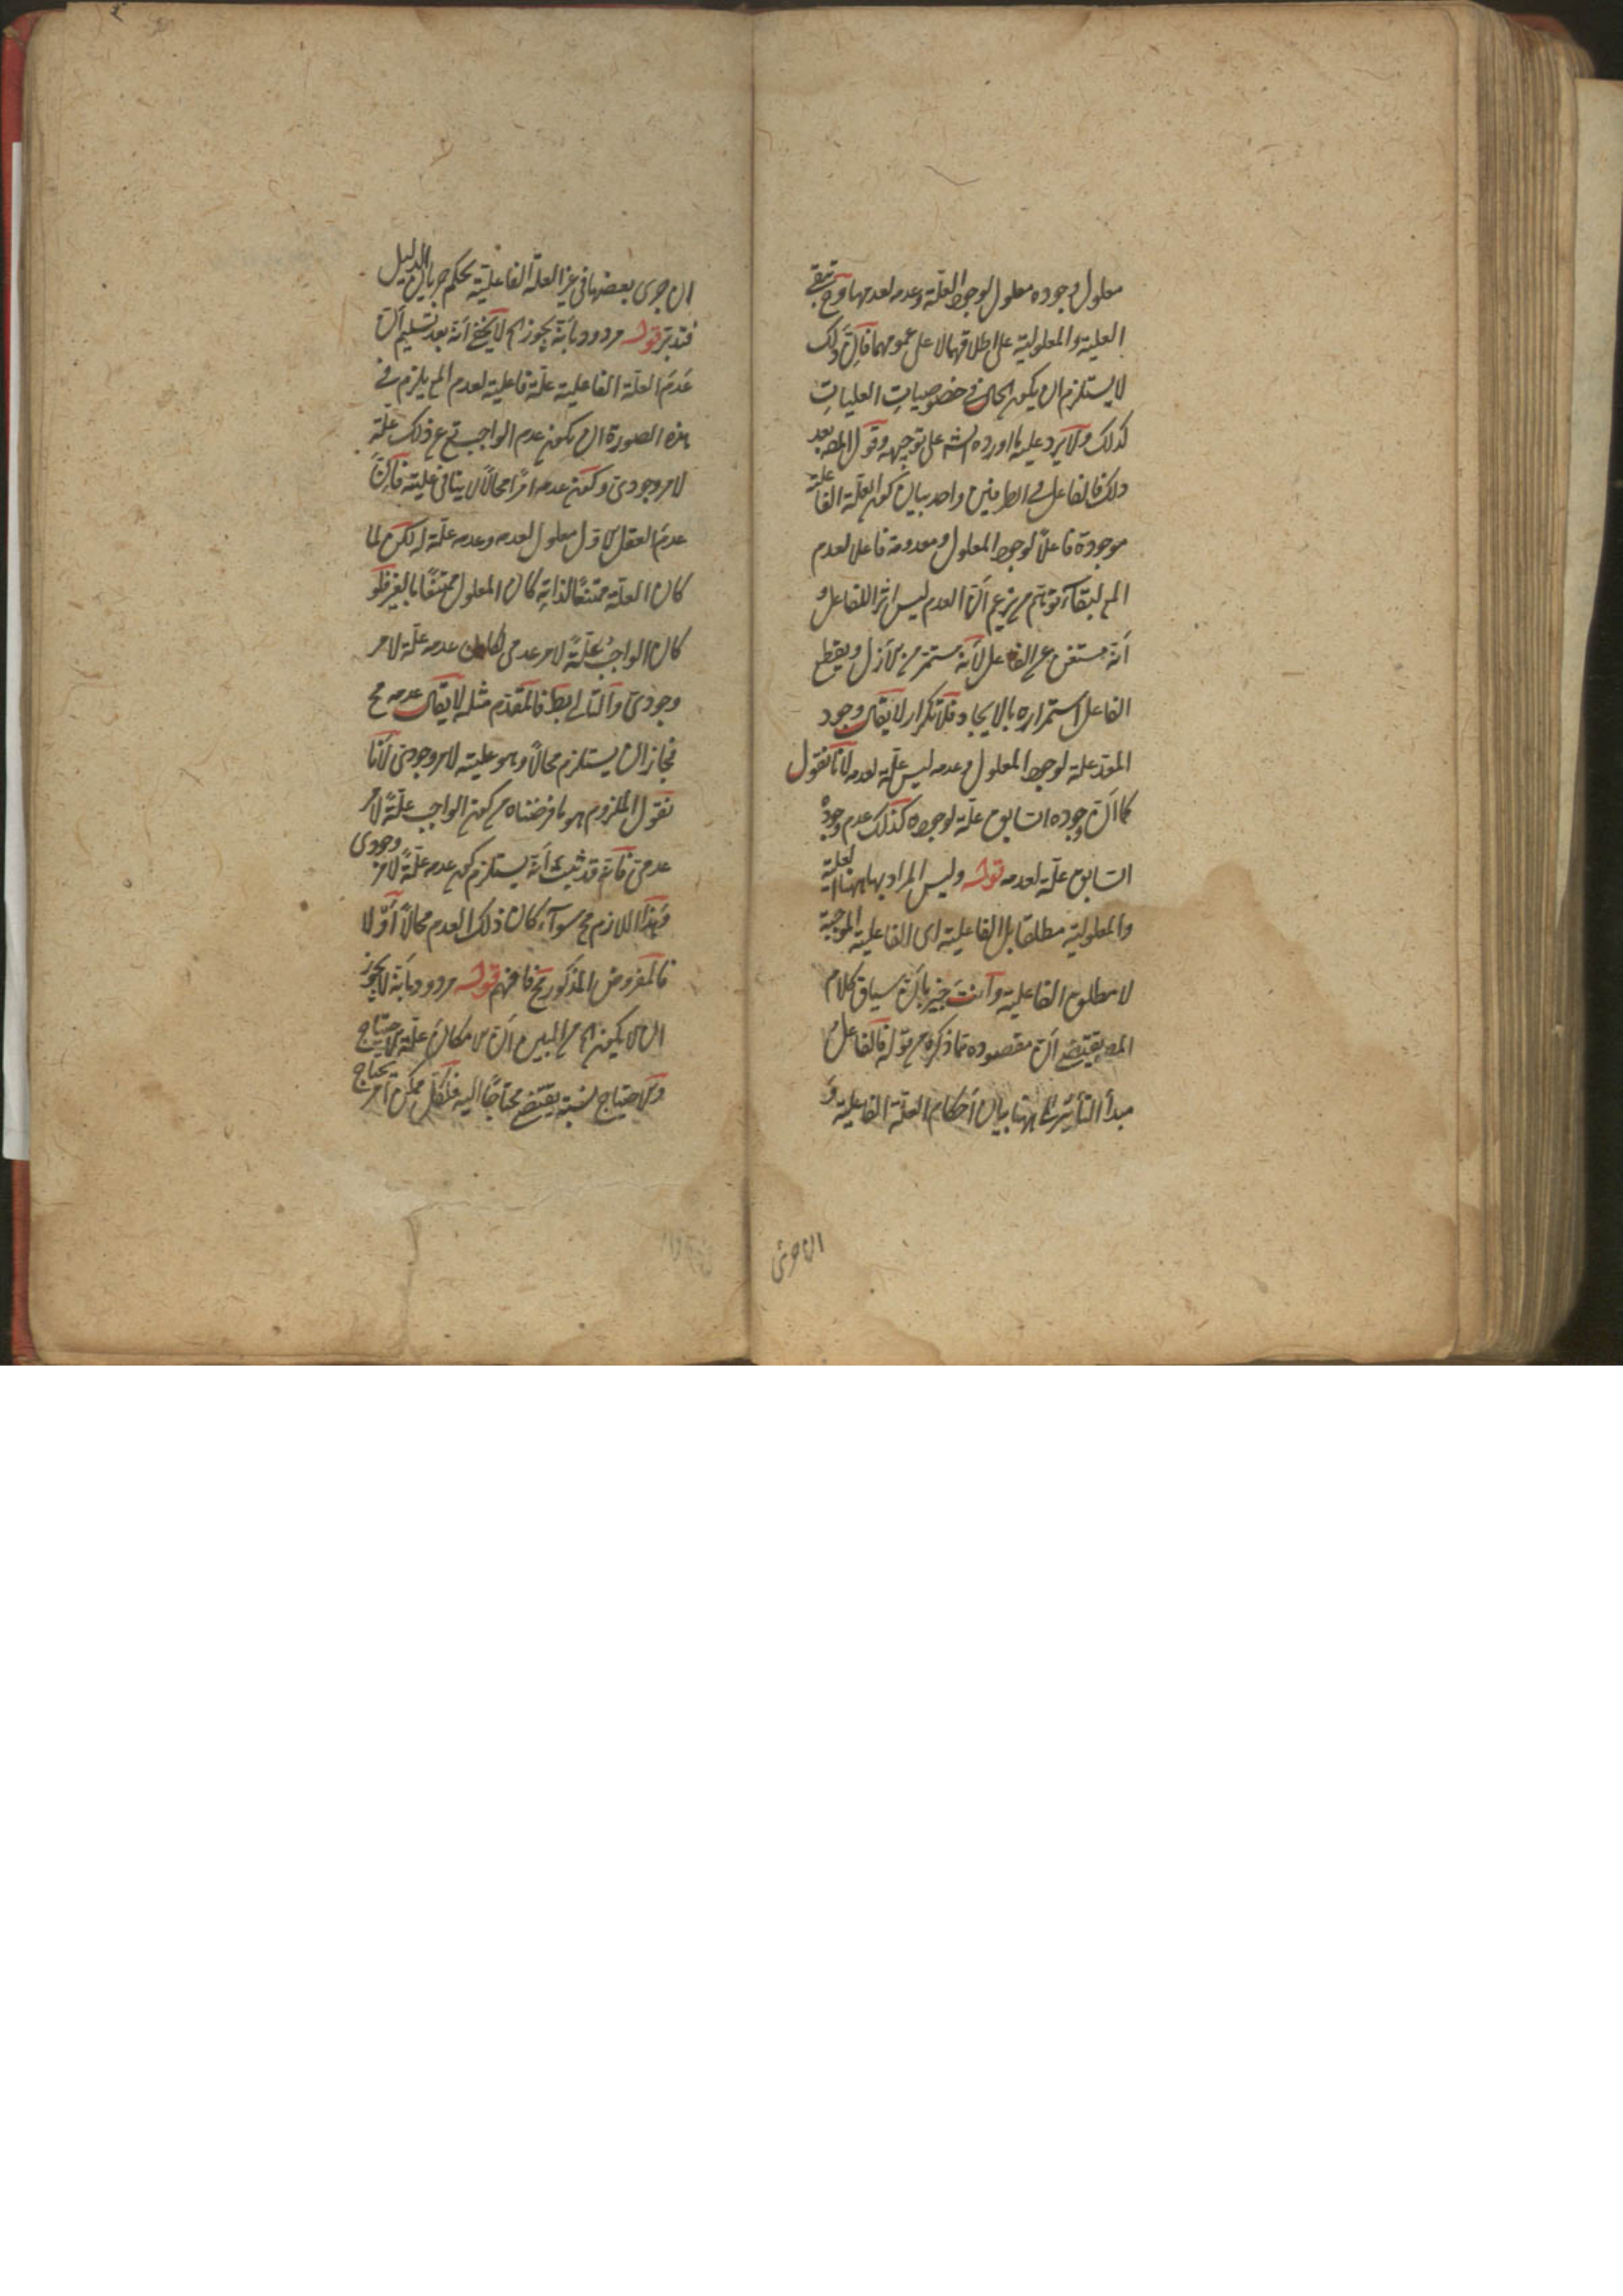 معلول وجوده معلول لوجود العلة وعدمه لعدمها وح تبقى
العلية والمعلولية على اطلاقهما لا على عمومهما فان ذلك
لا يستلزم ان يكون الحال فى خصوصيات العليات
كذلك ولا يرد عليه ما اورده الش على توجيهه وقول المص بعد
ذلك فالفاعل فى الطرفين واحد بيان كون العلة الفاعلية
موجودة فاعلا لوجود المعلول ومعدومة فاعلا لعدم
المع لبقاء توهم من يزعم أن العدم ليس اثرا للفاعل و
أنه مستغن عن الفاعل لأنه مستمر من الازل ويقطع
الفاعل استمراره بالايجاد فلا تكرار لا يقال وجود
المعد علة لوجود المعلول وعدمه ليس علة لعدمه لأنا نقول
كما أن وجوده السابق علة لوجوده كذلك عدم وجوده
السابق علة لعدمه قوله وليس المراد بها ههنا العلية
والمعلولية مطلقا بل الفاعلية اى الفاعلية الموجبة
لا مطلق الفاعلية وأنت خبير بأن سياق كلام
المص يقتضى أن مقصوده مما ذكره من قوله فالفاعل
مبدأ التأثير الى ههنا بيان أحكام العلة الفاعلية و
ان جرى
ان جرى بعضها فى غير العلة الفاعلية بحكم جريان الدليل
فتدبر قوله مردود بأنه يجوز الخ لا يخفى أنه بعد تسليم أن
عدم العلة الفاعلية علة فاعلية لعدم المع يلزم فى
هذه الصورة ان يكون عدم الواجب تع عن ذلك علة
لامر وجودى وكون عدمه امرا محالا لا ينافى عليته فان
عدم العقل الاول معلول لعدمه وعدمه علة له لكن لما
كان العلة ممتنعا لذاته كان المعلول ممتنعا بالغير فلو
كان الواجب علة لامر عدمى لكان عدمه علة لامر
وجودى والتالى بط فالمقدم مثله لا يقال عدمه مح
فجاز ان يستلزم محالا وهو عليته لامر وجودى لأنا
نقول الملزوم هو ما فرضناه من كون الواجب علة لامر
عدمى فانه قد ثبت أنه يستلزم كون عدمه علة لامر وجودى
وهذا اللازم مح سواء كان ذلك العدم محالا أو لا
فالمفروض المذكور مح فافهم قوله مردود بأنه لا يجوز
ان لا يكون الخ من المبين أن الامكان علة الاحتياج
والاحتياج نسبة يقتضى محتاجا اليه فلكل ممكن أمر يحتاج